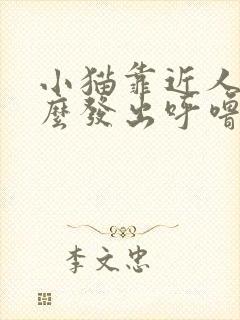 小猫靠近人
麼發出呼嚕
李文忠